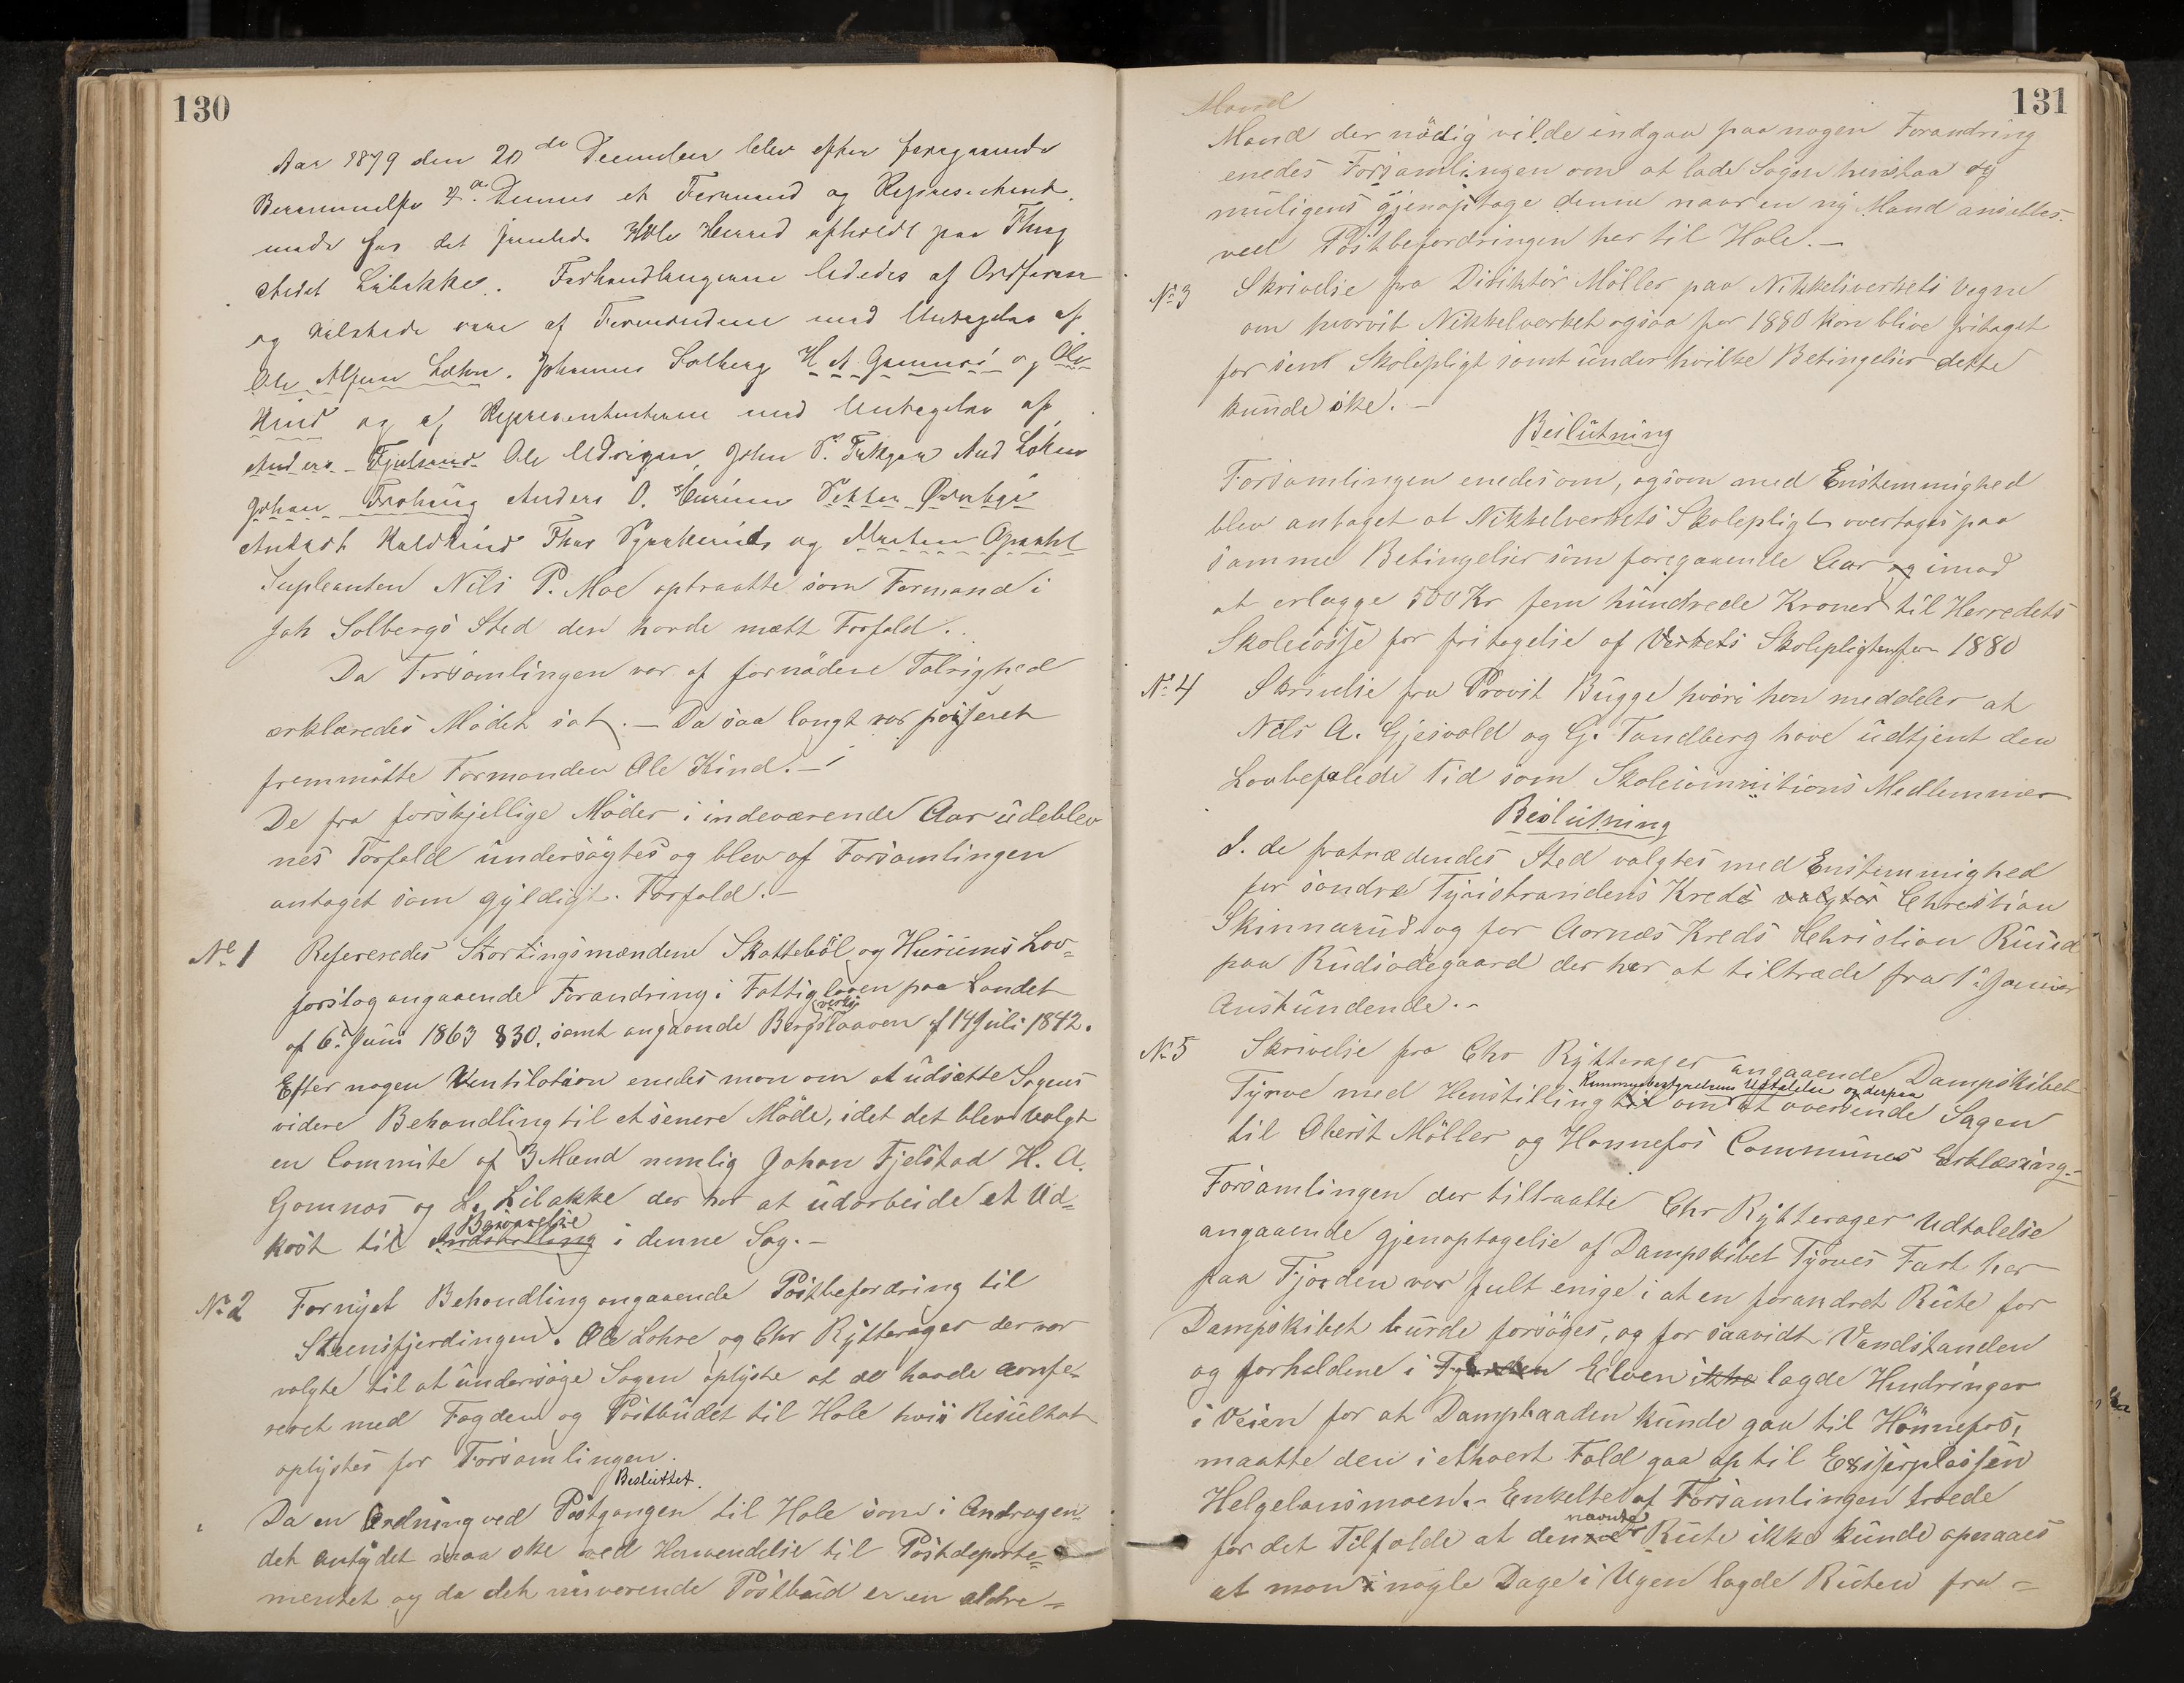 130
Aar 1879 den 20de December blev efter foregaaende
Berammelse d. Dennes et Formand og Repræsentant-
møde for det samlede Hole Herred afholdt paa Thing
stedet Libakke. Forhandlingerne lededes af Ordføreren
og tilstede vare af Formændene med Undtagelse af
Ole Alfsen Lohre. Johannes Solberg H A Gomnæs og Ole
Kind og af Repræsentanterne med Undtagelse af
Anders Fjelstad Ole Johan P. And Løken
Johan Frøhaug Anders O. Hurum Petter
Haldkind Thor og Morten Opsahl
Supleanten Nils P. Moe optraatte som Formand i
Joh Solbergs Sted den havde mætt Forfald.
Da Forsamlingen var af fornødene Talrighed
erklæredes Mödet sat. — Da saa langt var passeret
fremmötte Formanden Ole Kind. —
De fra forskjellige Möder i indeværende Aar udeblev
nes Forfald undersögtes og blev af Forsamlingen
antaget som gyldigt Forfald. —
No 1 Refereredes Stortingsmændene Skatteböl og Huruums Lov=
forslag angaaende Forandring i Fattigloven paa Landet
af 6. Juni 1863 § 30. samt angaaende Bergsverkslaaven af 14 Juli 1842.
Efter nogen Ventilation enedes man om at udsætte Sagens
videre Behandling til et senere Möde, idet det blev valgt
en Commite af 3 Mænd nemlig Johan Fjelstad H. A.
Gomnæs og L. Libakke der har at udarbeide et Ud=
kast til Indstilling Besvarelse i denne Sag. —
No 2 Fornyet Behandling angaaende Postbefordring til
Steensfjerdingen. Ole Lohre og Chr Rytterager der var
valgte til at undersöge Sagen oplyste at de havde confe-
reret med Fogden og Postbudet til Hole hvis Resultat
oplystes for Forsamlingen.
Besluttet.
Da en Ordning ved Postgangen til Hole som i Andragen
det antydet maa ske ved Henvendelse til Postdeparte=
mentet og da det nuværende Postbud er en aldre=
131
Mand
Mand der nödig vilde indgaa paa nogen Forandring
enedes Forsamlingen om at lade Sagen henstaa og
muligens gjenoptage denne naar en ny Mand ansættes
ved Postbefordringen her til Hole. —
No 3 Skrivelse fra Direktör Möller paa Nikkelsverkets Vegne
om hvorvit Nikkelverket ogsaa for 1880 kan blive fritaget
for sin Skolepligt samt under hvilke Betingelser dette
kunde ske. —
Beslutning
Forsamlingen enedes om, og som med Enstemmighed
blev antaget at Nikkelverkets Skolepligt overtages paa
samme Betingelser som foregaaende Aar og imod
at erlægge 500 Kr fem hundrede Kroner til Herredets
Skolecasse for fritagelse af Verkets Skolepligten for 1880
No 4 Skrivelse fra Provst Bugge hvori han meddeler at
Nils A. Gjesvold og G. Tandberg have udtjent den
Lovbefalede Tid som Skolecommitions Medlemmer
Beslutning
I. de fratrædendes Sted valgtes med Enstemmighed
for söndre Tyristrandens Kreds valgtes Christian
Skinnarud og for Aarnæs Kreds Christian Ruud
paa Rudsödegaard der har at tiltræde fra 1. Januar
Anstundende. —
No 5 Skrivelse fra Chr Rytterager angaaende Dampskibet
Kommunbestyrelsens Udtalelse og derpaa
Tyrve med Henstilling til om at oversende Sagen
til Oberst Möller og Honnefos Communes Erklæring. —
Forsamlingen der tiltraatte Chr Rytterager Udtalelse
angaaende gjenoptagelse af Dampskibet Tyrves Fart her
paa Fjorden var fult enige i at en forandret Rute for
Dampskibet burde forsöges, og for saavidt Vandstanden
og forholdene i Fjorden Elven ikke lagde Hindringer
i Veien for at Dampbaaden kunde gaa til Hönnefos,
maatte den i ethvert Fald gaa op til Exsiserplassen
Helgelansmoen. — Enkelte af Forsamlingen troede
nævnte
for det Tilfælde at denne Rute ikke kunde opnaaes
at man i nogle Dage i Ugen lagde Ruten fra =